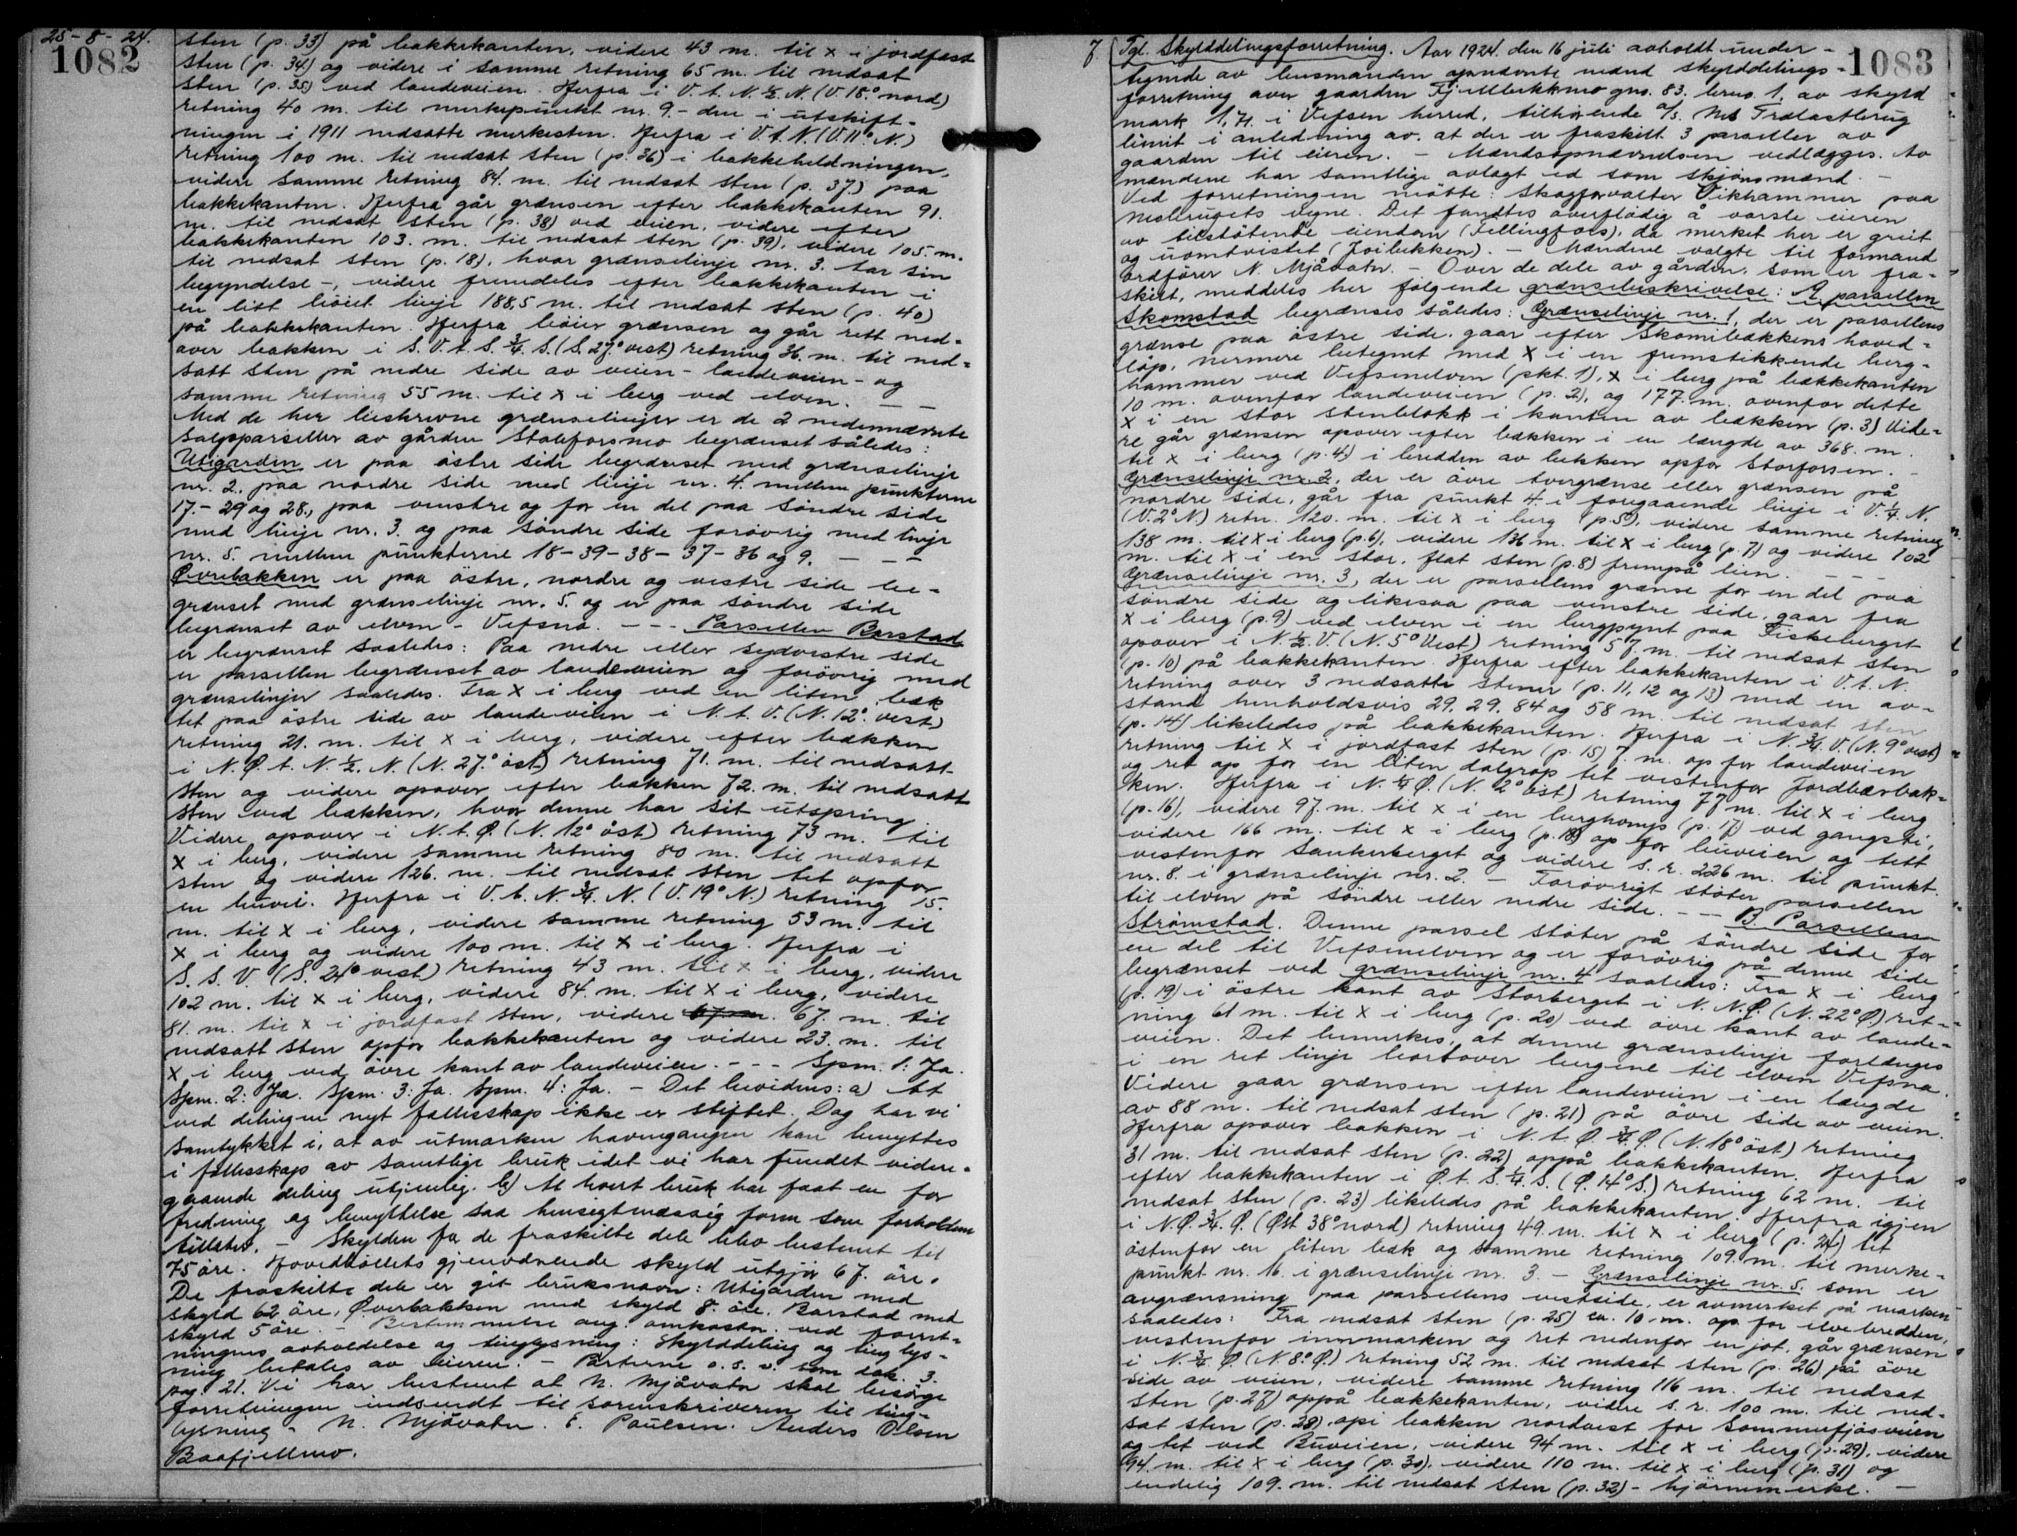 25-8-24.
1082
sten (p. 33) på bakkekanten, videre 43 m. til x i jordfast
sten (p. 34) og videre i samme retning 65 m. til nedsat
sten (p. 35) ved landeveien. Herfra i V. t. N. ½ N. (V. 18.° nord)
retning 40 m. til merkepunkt nr. 9 - den i utskift-
ningen i 1911 nedsatte merkesten. Herfra i V. t. N. (V. 11° N.)
retning 100 m. til nedsat sten (p. 36) i bakkeheldningen,
videre samme retning 84. m. til nedsat sten (p. 37.) paa
bakkekanten. Herfra går grænsen efter bakkekanten 91.
m. til nedsat sten (p. 38) ved veien, videre efter
bakkekanten 103. m. til nedsat sten (p. 39), videre 105. m.
til nedsat sten (p. 18), hvor grænselinje nr. 3. tar sin
begyndelse -, videre fremdeles efter bakkekanten i
en litt böiet linje 188,5 m. til nedsat sten (p. 40)
på bakkekanten. Herfra böier grænsen og går rett ned-
over bakken i S. V. t. S. ¾ S. (S. 27.° vest) retning 36. m. til ned-
satt sten på nedre side av veien - landeveien - og
samme retning 55 m. til x i berg ved elven. — —
Med de her beskrevne grænselinjer er de 2 nedennævnte
salgsparseller av gården Stabforsmo begrænset således:
Utigarden er paa östre side begrænset med grænselinje
nr. 2, paa nordre side med linje nr. 4. mellem punkterne
17. - 29 og 28., paa venstre og for en del paa söndre side
med linje nr. 3. og paa söndre side forövrig med linje
nr. 5. mellem punkterne 18 - 39 - 38 - 37 - 36 og 9. — — —
Øvrebakken er paa östre, nordre og vestre side be-
grænset med grænselinje nr. 5. og er paa söndre side
begrænset av elven - Vefsna. - - - Parsellen Barstad
er begrænset saaledes: Paa nedre eller sydvestre side
er parsellen begrænset av landeveien og forövrig med
grænselinjer saaledes. Fra x i berg ved en liten bæk
tet paa östre side av landeveien i N. t. V. (N. 12.° vest)
retning 21. m. til x i berg, videre efter bækken
i N. Ø. t. N. ½. N. (N. 27.° öst) retning 71. m. til nedsatt
sten og videre opover efter bækken 72. m. til nedsatt
sten ved bækken, hvor denne har sit utspring.
Videre opover i N. t. Ø. (N. 12° öst) retning 73 m. til
x i berg, videre samme retning 80 m. til nedsatt
sten og videre 126. m. til nedsat sten tet opfor
en buvei. Herfra i V. t. N. ¾. N. (V. 19° N.) retning 15.
m. til x i berg, videre samme retning 53 m. til
x i berg og videre 100 m. til x i berg. Herfra i
S. S. V. (S. 24° vest) retning 43 m. til x i berg, videre
102 m. til x i berg, videre 84. m. til x i berg, videre
81. m. til x i jordfast sten, videre 67. m. til
nedsatt sten opfor bakkekanten og videre 23. m. til
x i berg ved övre kant av landeveien. - - - Spm. 1: Ja.
Spm. 2: Ja. Spm. 3: Ja. Spm. 4: Ja. - Det bevidnes: a) At
ved delingen nyt fællesskap ikke er stiftet. Dog har vi
samtykket i, at av utmarken havnegangen kan benyttes
i fællesskap av samtlige bruk idet vi har fundet videre-
gaaende deling utjenlig. b) At hvert bruk har faat en for
fredning og benyttelse saa hensigtmæssig form som forholdene
tillater. - Skylden for de fraskilte dele blev bestemt til
75 öre. Hovedbölets gjenværende skyld utgjör 67. öre.
De fraskilte dele er git bruksnavn: Utigården med
skyld 62 öre, Øverbakken med skyld 8. öre, Barstad med
skyld 5 öre. - Bestemmelse ang. omkostn. ved forret-
ningens avholdelse og tinglysning: Skylddeling og tinglys-
ning betales av eieren. - Parterne o. s. v. som dok. 3.
pag. 21. Vi har bestemt at N. Mjåvatn skal besörge
forretningen indsendt til sorenskriveren til ting-
lysning. N. Mjåvatn. E. Paulsen. Anders Olsen
Baafjellmo.
1083
7 Tgl. Skylddelingsforretning. Aar 1924. den 16 juli avholdt under-
tegnede av lensmanden opnævnte mænd skylddelings-
forretning over gaarden Fjellbekkmo gno. 83, brno 1. av skyld
mark 1,71. i Vefsen herred, tilhörende A/s. Nes Trælastbrug
limit i anledning av, at der er fraskilt 3 parseller av
gaarden til eieren. - Mændsopnævnelsen vedlægges. Av
mændene har samtlige avlagt ed som skjönsmænd. -
Ved forretningen mötte: Skogforvalter Vikhammer paa
Nesbrugets vegne. Det fandtes overflödig å varsle eieren
av tilstötende eiendom (Fellingfors), da merket her er greit
og uomtvistet (Joibekken). - Mændene valgte til formand
ordförer N. Mjåvatn. - Over de dele av gården, som er fra-
skilt, meddeles her fölgende grænsebeskrivelse: A. parsellen
Skomstad begrænses således: Grænselinje nr. 1, der er parsellens
grænse paa östre side, gaar efter Skomibækkens hoved-
löp, nermere betegnet med x i en fremstikkende berg-
hammer ved Vefsnelven (pkt. 1), x i berg på bækkekanten
10 m. ovenfor landeveien (p. 2), og 177. m. ovenfor dette
x i en stor stenblokk i kanten av bækken (p. 3) Vide-
re går grænsen opover efter bækken i en længde av 368. m.
til x i berg (p. 4.) i bredden av bekken opfor Storforsen. -
Grænselinje nr. 2, der er övre tvergrænse eller grænsen på
nordre side, går fra punkt 4. i foregaaende linje i V. ¼ N.
(V. 2° N.) retn. 120. m. til x i berg (p. 5), videre samme retning
138 m. til x i berg (p. 6), videre 136 m. til x i berg (p. 7) og videre 102
m. til x i en stor, flat sten (p. 8) frempå lien. — — —
Grænselinje nr. 3, der er parsellens grænse for en del paa
söndre side og likesaa paa venstre side, gaar fra
x i berg (p. 9) ved elven i en bergpynt paa Fiskeberget
opover i N. ½. V. (N. 5° Vest) retning 57. m. til nedsat sten
(p. 10) på bakkekanten. Herfra efter bakkekanten i V. t. N.
retning over 3 nedsatte stener (p. 11, 12 og 13) med en av-
stand henholdsvis 29, 29, 84 og 58 m. til nedsat sten
(p. 14) likeledes på bakkekanten. Herfra i N. ¾. V. (N. 9° vest)
retning til x i jordfast sten (p. 15) 7. m. op for landeveien
og ret op for en liten dalgrop tet vestenfor Jordbærbak-
ken. Herfra i N. ¼ Ø. (N. 2° öst) retning 77 m. til x i berg
(p. 16), videre 97. m. til x i en berghomp (p. 17) ved gangsti,
videre 166 m. til x i berg (p. 18) op for buveien og tett
vestenfor Sankerberget og videre s. r. 226 m. til punkt
nr. 8. i grænselinje nr. 2. - Forövrigt stöter parsellen
til elven på söndre eller nedre side. - - B. Parsellen
Strömstad. Denne parsel stöter på söndre side for
en del til Vefsnelven og er forövrig på denne side
begrænset ved grænselinje nr. 4 saaledes: Fra x i berg
(p. 19) i östre kant av Storberget i N. N. Ø. (N. 22° Ø.) ret-
ning 61 m. til x i berg (p. 20) ved övre kant av lande-
veien. Det bemerkes, at denne grænselinje forlænges
i en ret linje bortover bergene til elven Vefsna.
Videre gaar grænsen efter landeveien i en længde
av 88 m. til nedsat sten (p. 21) på övre side av veien.
Herfra opover bakken i N. t. Ø. ¾. Ø. (N. 18° öst) retning
31 m. til nedsat sten (p. 22) oppå bakkekanten. Herfra
efter bakkekanten i Ø. t. S. ¼. S. (Ø. 14° S.) retning 62 m. til
nedsat sten (p. 23) likeledes på bakkekanten. Herfra igjen
i N. Ø. ¾. Ø. (Øst 38° nord) retning 49. m. til x i berg (p. 24) tet
östenfor en liten bæk og samme retning 109. m. til merke-
punkt nr. 16. i grænselinje nr. 3. - Grænselinje nr. 5. som er
avgrænsning paa parsellens vestside, er avmerket på marken
saaledes: Fra nedsat sten (p. 25) ca. 10. m. op for elvebredden,
vestenfor innmarken og ret nedenfor en jot, går grænsen
i N. ¾. Ø. (N. 8.° Ø.) retning 52 m. til nedsat sten (p. 26) på övre
side av veien, videre samme retning 116 m. til nedsat
sten (p. 27) oppå bakkekanten, videre s. r. 100 m. til ned-
sat sten (p. 28) opi bakken nordvest for Sommerfjösveien
og tet ved Buveien, videre 94 m. til x i berg (p. 29), videre
94. m. til x i berg (p. 30), videre 110 m. til x i berg (p. 31) og
endelig 109. m. til nedsat sten (p. 32) - hjörnemerke. -